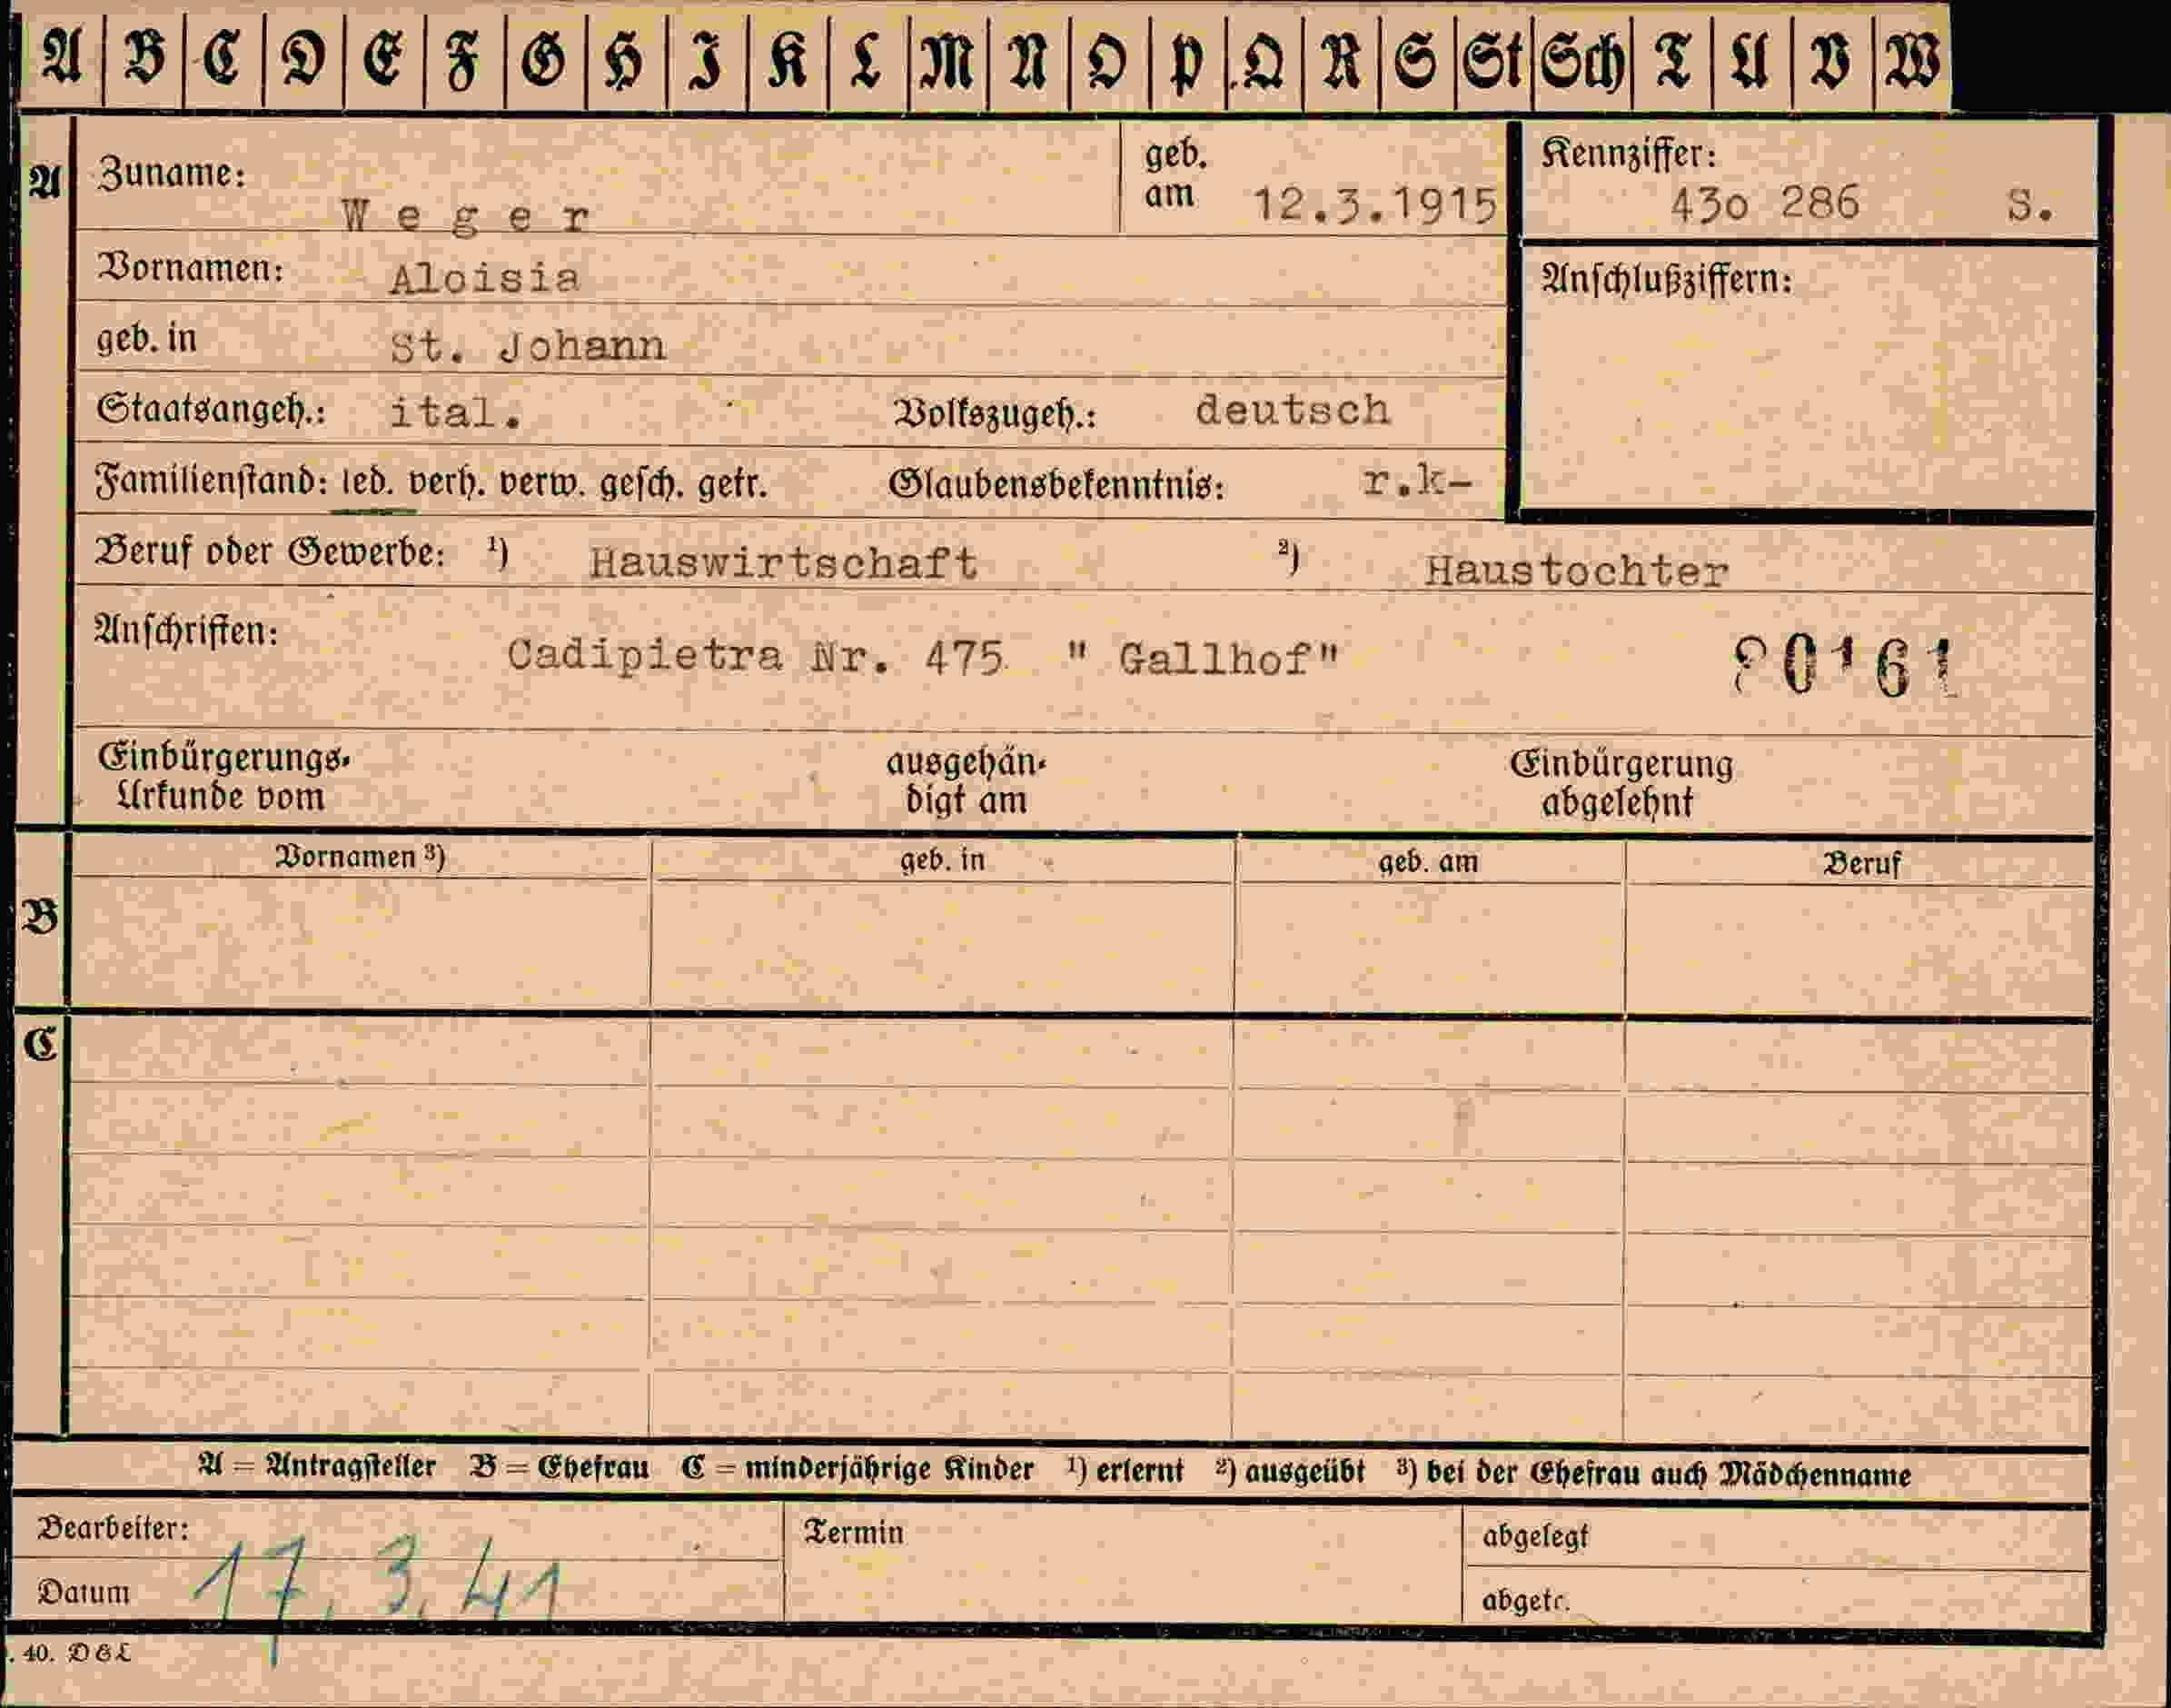 A B C D E F G H I K L M N O P Q R S St Sch T U V W
A Zuname: Weger geb. am 12.3.1915 Kennziffer: 43o 286 S.
Vornamen: Aloisia Anschlußziffern:
geb. in St. Johann
Staatsangeh.: ital. Volkszugeh.: deutsch
Familienstand: led. verh. verw. gesch. getr. Glaubensbekenntnis: r.k-
Beruf oder Gewerbe: ¹) Hauswirtschaft ²) Haustochter
Anschriften: Cadipietra Nr. 475 " Gallhof"
Einbürgerungs- Urkunde vom ausgehän- digt am Einbürgerung abgelehnt
Vornamen ³) geb. in geb. am Beruf
B
C
A = Antragsteller B = Ehefrau C = minderjährige Kinder ¹) erlernt ²) ausgeübt ³) bei der Ehefrau auch Mädchenname
Bearbeiter: Termin abgelegt
Datum 17.3.41 abgetr.
. 40. DGL